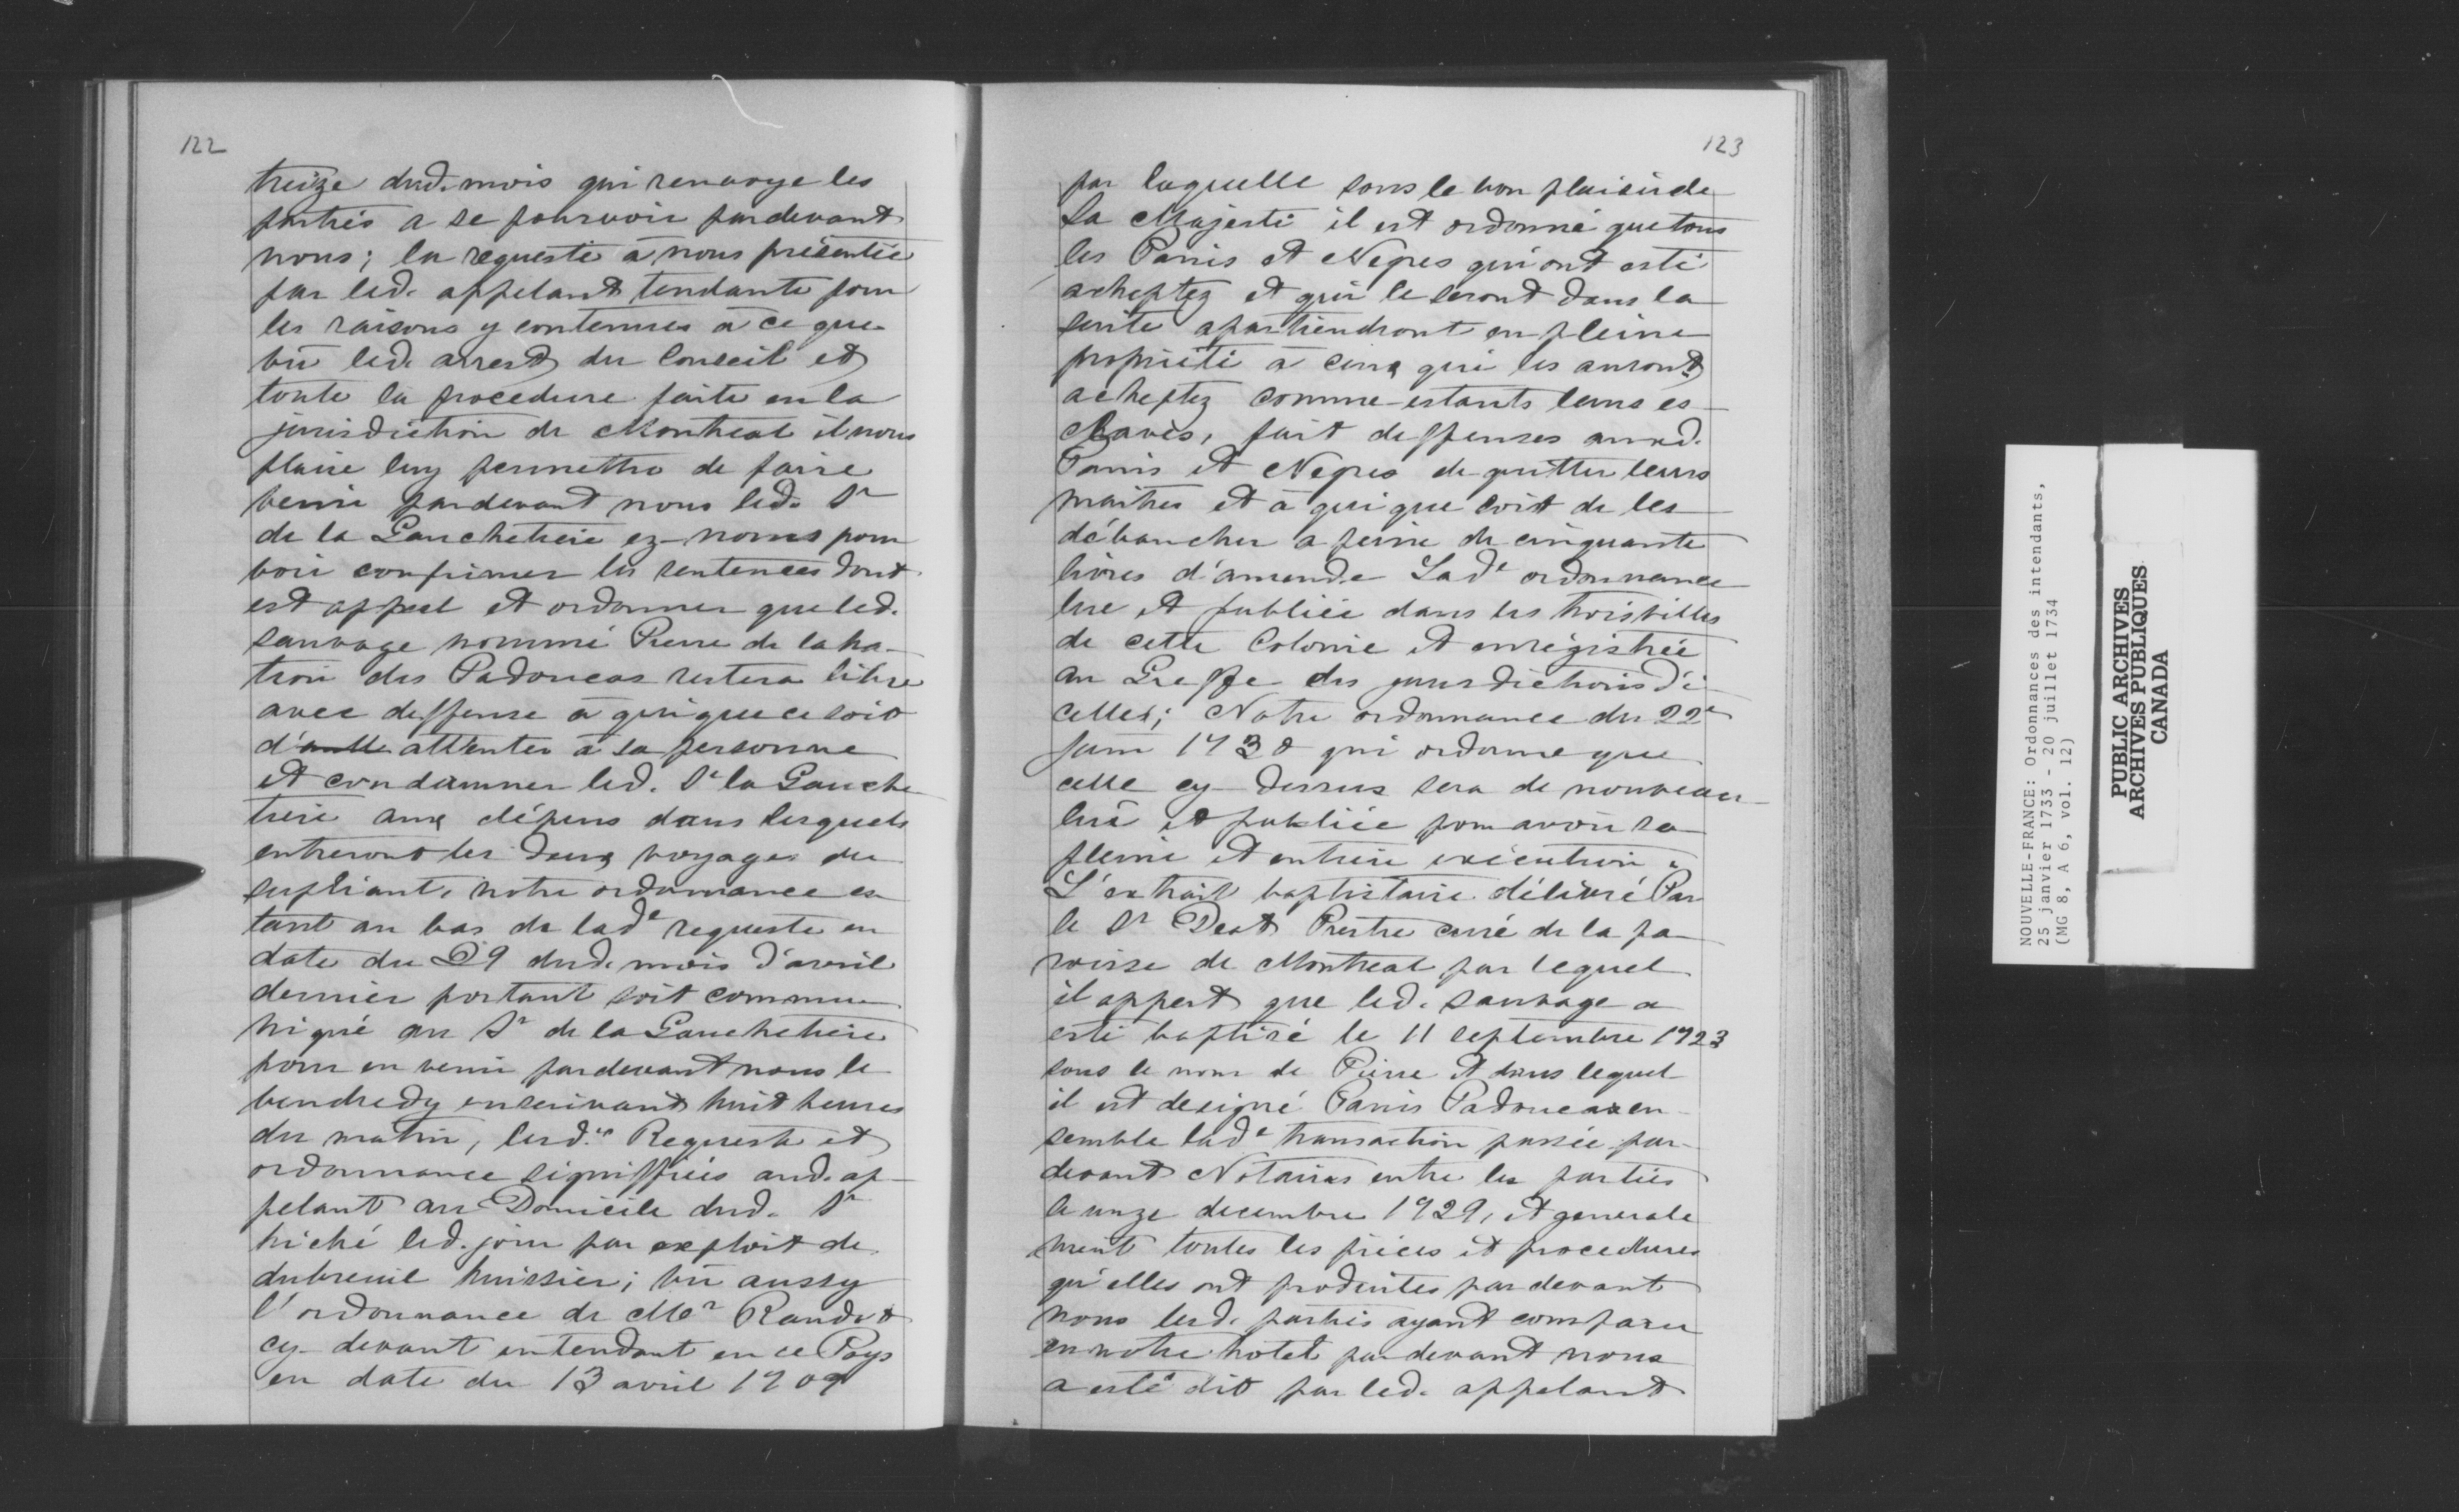 122
treize dud. mois qui renvoye les
parties a se pourvoir pardevant
nous; la requeste à nous présentée
par led. appelant tendante pour
les raisons y contenues à ce que
vû led. arrest du Conseil et
toute la procedure faite en la
jurisdiction de Montreal il nous
plaise luy permettre de faire
venir pardevant nous led. Sr
de la Gauchetiere ez-noms pour
voir confirmer les sentences dont
est appel et ordonner que led.
sauvage nommé Pierre de la na-
tion des Padoucas restera libre
avec deffense à qui que ce soit
d'attenter à sa personne
et condamner led. Sr la Gauche
tiere aux dépens dans lesquels
entreront les deux voyages du
supliant, notre ordonnance es-
tant au bas de lade requeste en
date du 29 dud. mois d'avril
dernier portant soit commu-
niqué au Sr de la Gauchetiere
pour en venir pardevant nous le
vendredy ensuivant huit heures
du matin, lesd.es Requeste et
ordonnance signiffiées aud. ap-
pelant au Domicile dud. Sr
hiché led. jour par exploit de
dubreuil huissier; vû aussy
l'ordonnance de Mr Raudot
cy-devant intendant en ce Pays
en date du 13 avril 1709
123
par laquelle sous le bon plaisir de
Sa Majesté il est ordonné que tous
les Panis et Negres qui ont esté
acheptez et qui le seront dans la
suite apartiendront en pleine
propriété à ceux qui les auront
acheptez comme estants leurs es-
claves, fait deffenses auxd.
Panis et Negres de quitter leurs
maitres et à qui que soit de les
débaucher a peine de cinquante
livres d'amende Lade ordonnance
lue et publiée dans les trois villes
de cette Colonie et enrégistrée
au Greffe des jurisdictions d'i-
celles; Notre ordonnance du 22e
juin 1730 qui ordonne que
celle cy-dessus sera de nouveau
luë et publiée pour avoir sa
pleine et entiere exécution
L'extrait baptistaire délivré Par
le Sr Deat Prestre curé de la pa-
roisse de Montreal par lequel
il appert que led. sauvage a
esté baptisé le 11 septembre 1723
sous le nom de Pierre et dans lequel
il est designé Panis Padoucas en-
semble lade transaction passée par-
devant Notaires entre les parties
le unze decembre 1729, et generale
ment toutes les pièces et procedures
qu'elles ont produites pardevant
nous lesd. parties ayant comparu
en notre hotel pardevant nous
a esté dit par led. appelant
NOUVELLE-FRANCE: Ordonnances des intendants,
25 janvier 1733 - 20 juillet 1734
(MG 8, A 6, vol. 12)
PUBLIC ARCHIVES
ARCHIVES PUBLIQUES
CANADA